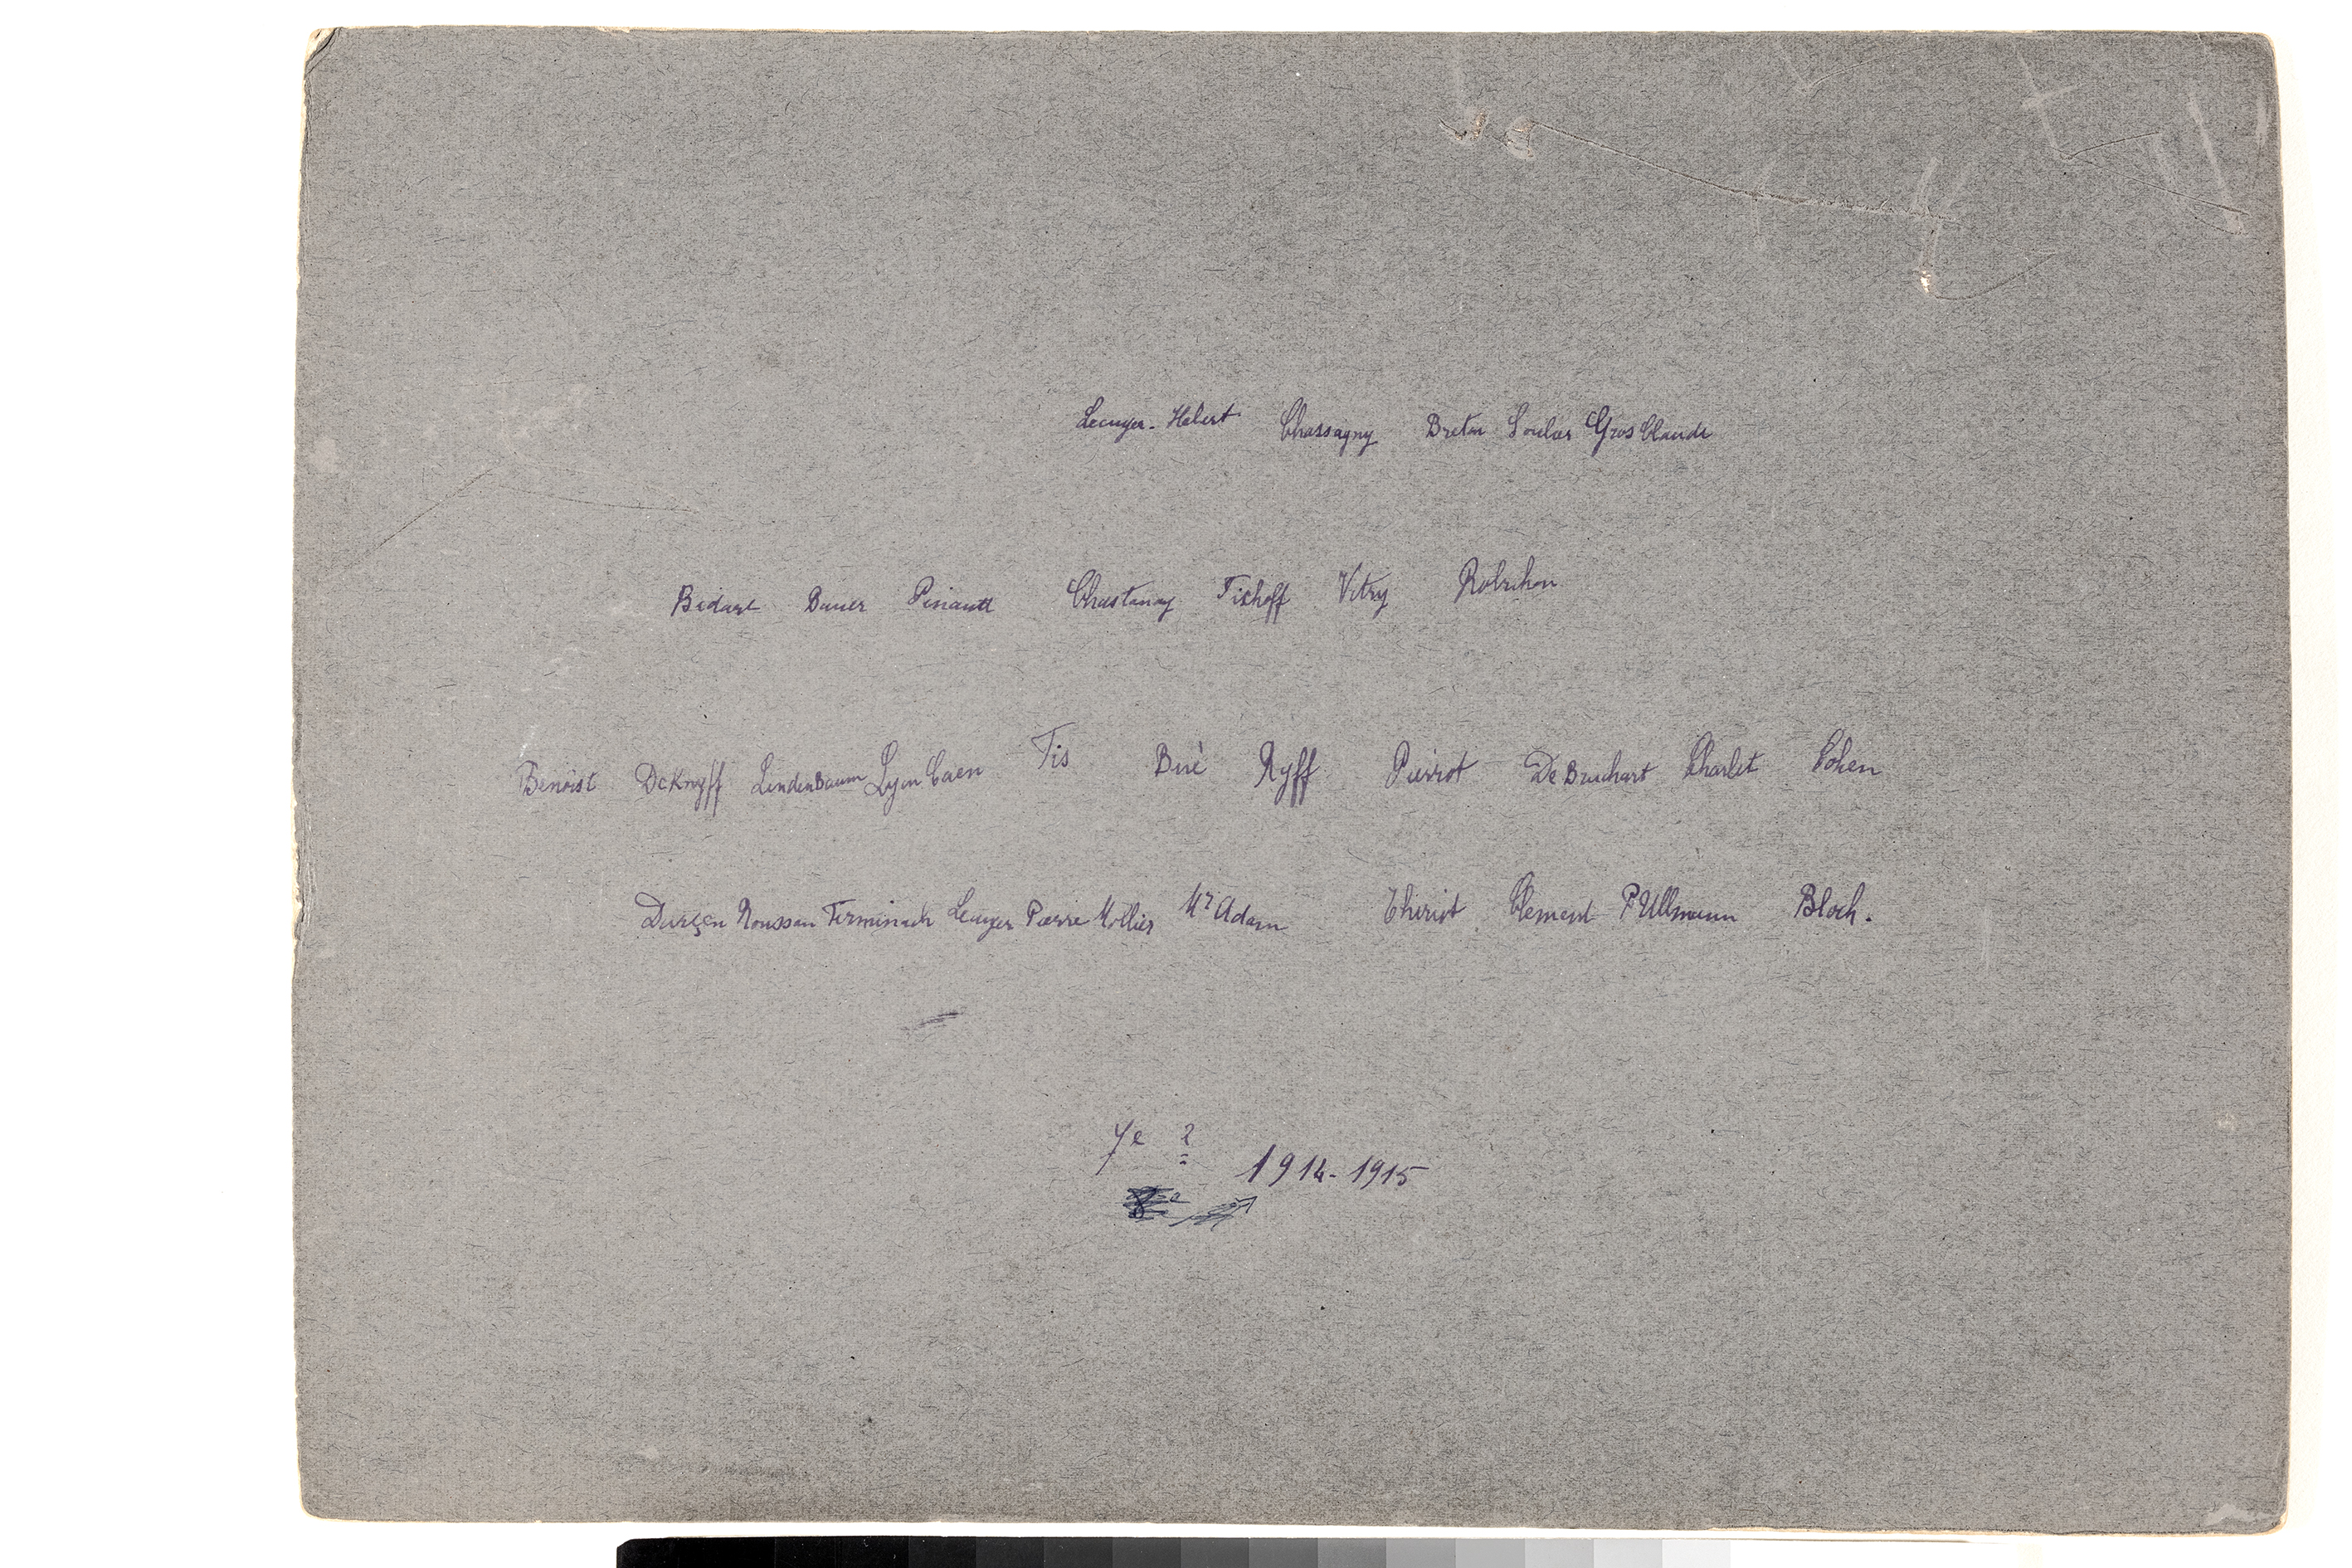 Lecuyer - Hebert Chassagny Breton Soulier Gros Claude
Bedart Bauer Pinault Chastanay Fishoff Vitry Robichon
Benoist De Knyff Lindenbaum Lyon Caen Tis Bué Ryff Pierrot De Bruchart Charlet Cohen
Roussau Lecuyer Pierre Mollier Mr Adam Thiriot Clement P Ullmann Bloch.
1914-1915